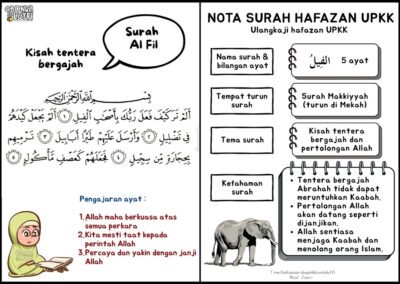 BONDA
LUTFI
Kisah tentera
bergajah
Surah
Al Fil
بِسْمِ اللَّهِ الرَّحْمَٰنِ الرَّحِيمِ
أَلَمْ تَرَ كَيْفَ فَعَلَ رَبُّكَ بِأَصْحَابِ الْفِيلِ ۝١ أَلَمْ يَجْعَلْ كَيْدَهُمْ
فِي تَضْلِيلٍ ۝٢ وَأَرْسَلَ عَلَيْهِمْ طَيْرًا أَبَابِيلَ ۝٣ تَرْمِيهِمْ
بِحِجَارَةٍ مِّن سِجِّيلٍ ۝٤ فَجَعَلَهُمْ كَعَصْفٍ مَّأْكُولٍ ۝٥
Pengajaran ayat :
1.Allah maha berkuasa atas
semua perkara
2.Kita mesti taat kepada
perintah Allah
3.Percaya dan yakin dengan janji
Allah
NOTA SURAH HAFAZAN UPKK
Ulangkaji hafazan UPKK
Nama surah &
bilangan ayat
الْفِيلُ
5 ayat
Tempat turun
surah
Surah Makkiyyah
(turun di Mekah)
Tema surah
Kisah tentera
bergajah dan
pertolongan Allah
Kefahaman
surah
• Tentera bergajah
Abrahah tidak dapat
meruntuhkan Kaabah.
• Pertolongan Allah
akan datang seperti
dijanjikan.
• Allah sentiasa
menjaga Kaabah dan
menolong orang Islam.